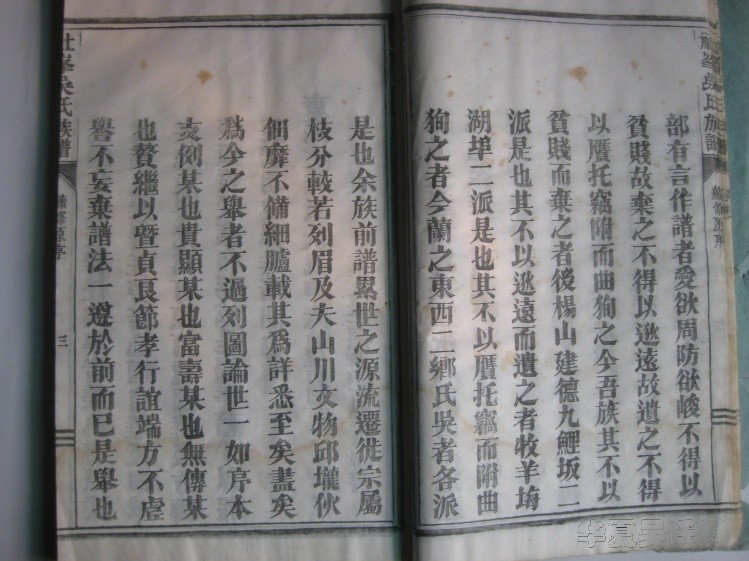 部有言作譜者愛欲周防欲峻不得以
貧賤故棄之不得以逖遠故遺之不得
以贋托竄附而曲狥之今吾族其不以
貧賤而棄之者後楊山建德九鯉坂二
派是也其不以逖遠而遺之者牧羊塢
湖埠二派是也其不以贋托竄而附曲
狥之者今蘭之東西二鄉氏吳者各派
是也余族前譜累世之源流遷徙宗屬
枝分較若列眉及夫山川文物邱壠伙
佃靡不備細臚載其為詳悉至矣盡矣
為今之舉者不過列圖論世一如序本
支例某也貴顯某也富壽某也無傳某
也贅繼以暨貞艮節孝行誼端方不虛
譽不妄棄譜法一遵於前而已是舉也
社峯吳氏族譜
續修原序
三